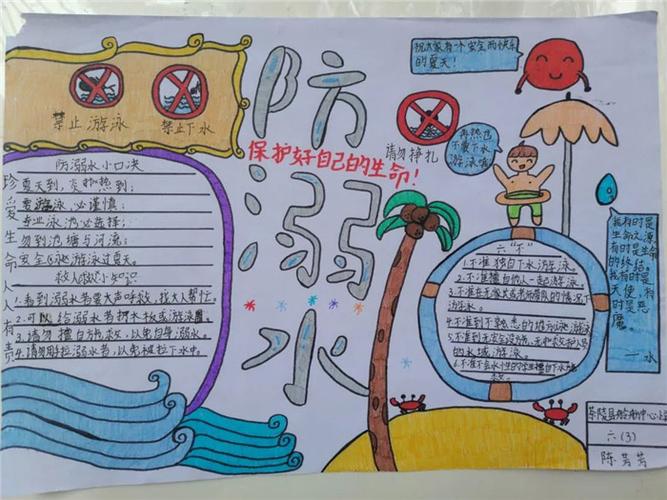 禁止游泳
禁止下水
防溺水
保护好自己的生命!
请勿挣扎
祝大家有个安全而快乐
的夏天!
再热也
不要下水
游泳哦
珍爱生命人人有责
防溺水小口决
夏天到,炎热到;
要游泳,必谨慎;
专业泳池必选择;
勿到池塘与河流;
安全
过夏天。
救人
小知识
1.看到溺水者要大声呼救,找大人帮忙。
2.可以给溺水者抛木板或游泳圈。
3.请勿擅自施救,以免自身溺水。
4.请勿用手拉溺水者,以免被拉下水中。
六“不”
1.不准独自下水游泳。
2.不准擅自他人一起游泳。
3.不准在无家长或老师带队的情况下
游泳。
4.不准到不熟悉的地方游泳
5.不准到无安全设施、无救护人员
的水域游泳。
6.不准不会水性的学生擅自下水施
救。
我有时是
生命之源,
有时是生命
的终结。
我有时是
天使,
有时是恶
魔。
——水
茶陵县
中心小学
六(3)
陈芳芳